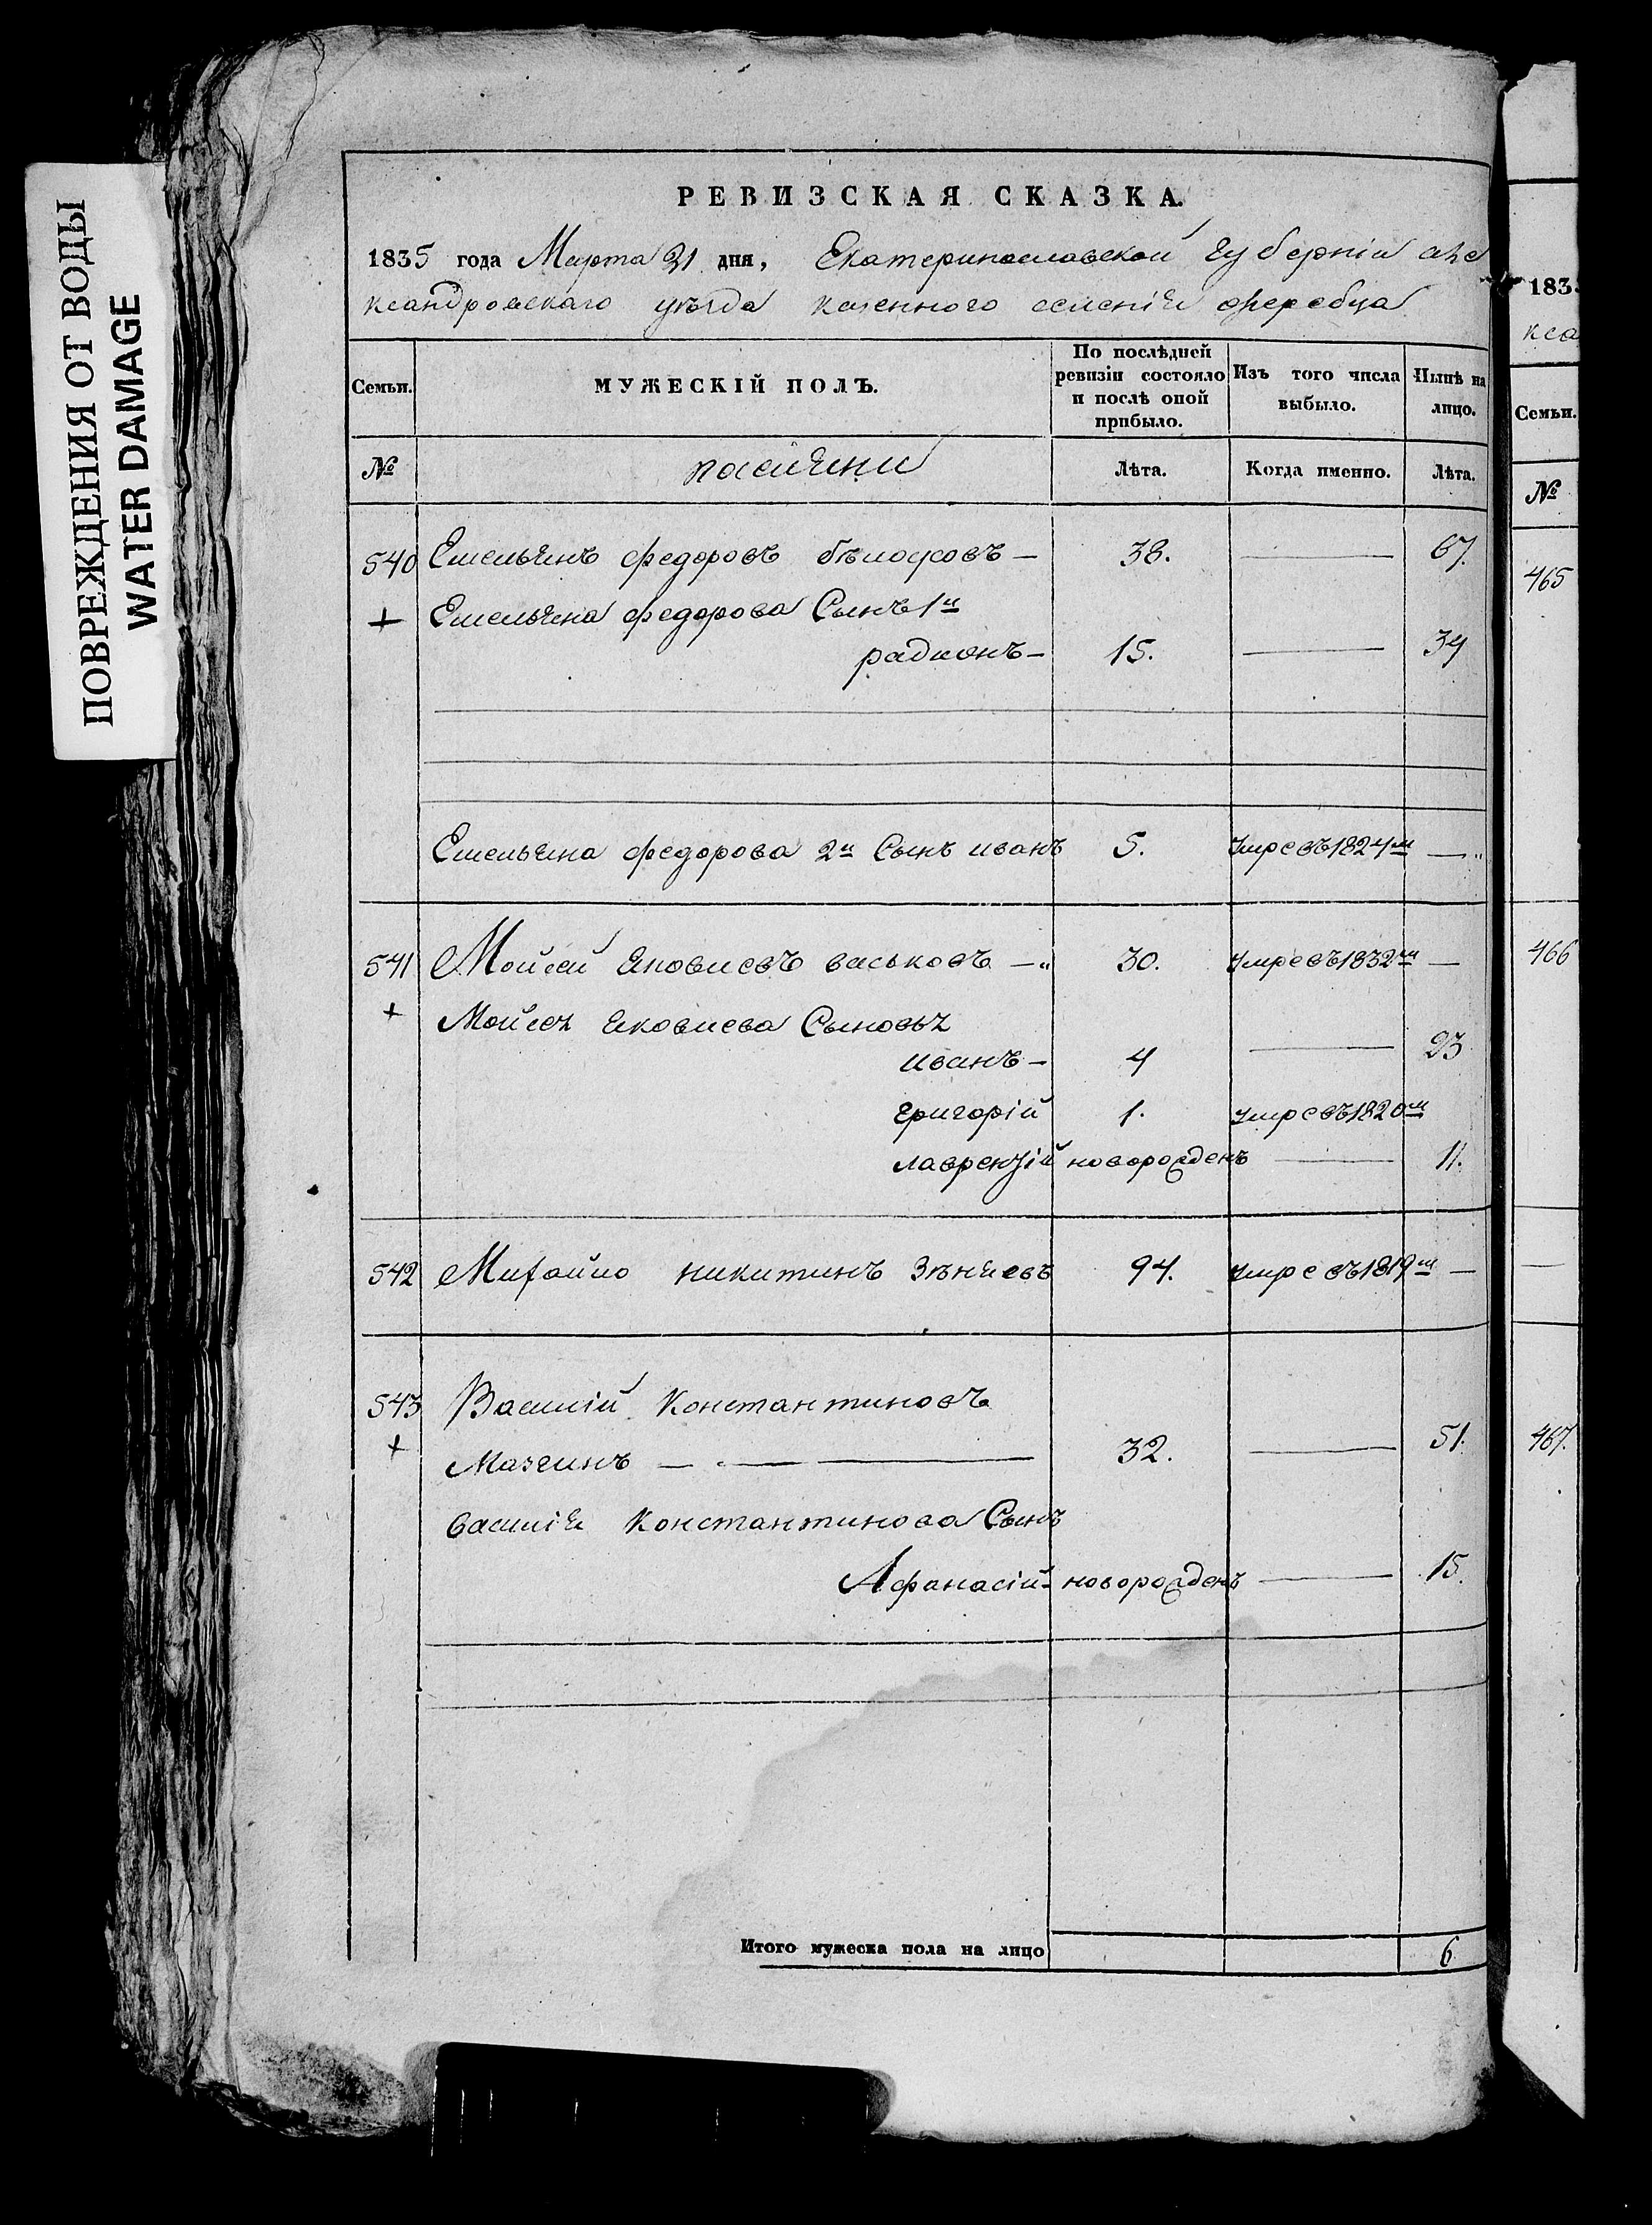 ПОВРЕЖДЕНИЯ ОТ ВОДЫ
WATER DAMAGE
РЕВИЗСКАЯ СКАЗКА.
1835 года Марта 31 дня, Екатеринославской губерніи але
ксандровскаго уѣзда казенного селенія жеребца
Семьи. МУЖЕСКІЙ ПОЛЪ. По послѣдней ревизіи состояло и послѣ оной прибыло. Изъ того числа выбыло. Нынѣ на лицо.
№ Лѣта. Когда именно. Лѣта.
540 Емельянъ федоровъ бѣлоусовъ — 38. — 67.
+ Емельяна федорова Сынъ 1й
радионъ — 15. — 34
Емельяна федорова 2й Сынъ иванъ 5. умре въ 1824м —
541 Мойсей яковлевъ васьковъ — 30. умре въ 1832м —
+ Мойсея яковлева Сыновья
иванъ — 4 — 23
григорій 1. умре въ 1820м
лаврентій новорожденъ — 11.
542 Михайло никитинъ Зѣняевъ 94. умре въ 1819м —
543 Василій Константиновъ
+ Мазчинъ — 32. — 51.
василія Константинова Сынъ
Афанасій новорожденъ — 15.
Итого мужеска пола на лицо 6
183
кса
Семьи.
№
465
466
467.